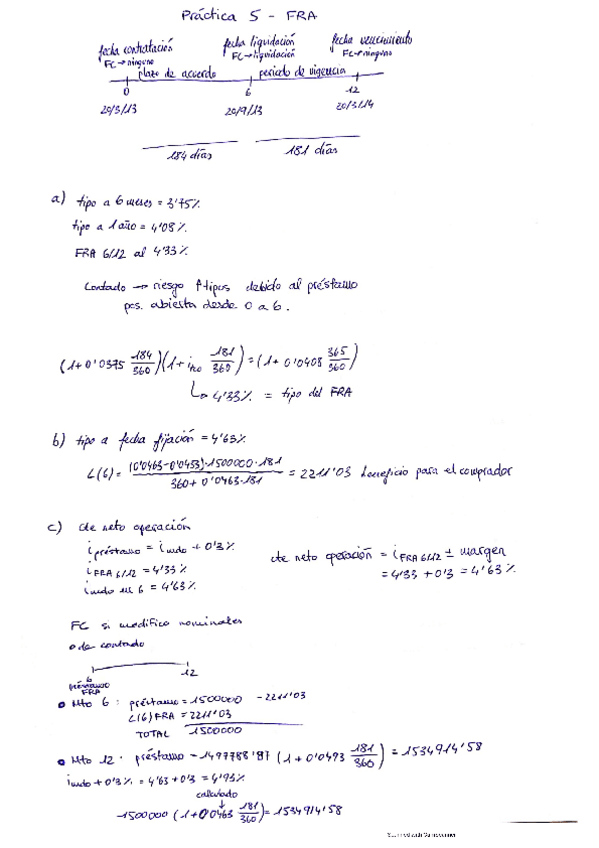 Práctica 5 - FRA
fecha contratación fecha liquidación fecha vencimiento
FC→ninguno FC→liquidación FC→ninguno
plazo de acuerdo periodo de vigencia
0 6 12
20/3/13 20/9/13 20/3/14
184 días 181 días
a) tipo a 6 meses = 3'75%
tipo a 1 año = 4'08%
FRA 6/12 al 4'33%
Contado → riesgo ↑tipos debido al préstamo
pos. abierta desde 0 a 6.
(1+0'0375 184/360)(1+ 181/360) = (1+0'0408 365/360)
↳ 4'33% = tipo del FRA
b) tipo a fecha fijación = 4'63%
L(6) = (0'0463-0'0433)·1500000·181 / 360+0'0463·181 = 2211'03 beneficio para el comprador
c) cte neto operación
i préstamo = i mdo + 0'3%
i FRA 6/12 = 4'33%
i mdo en 6 = 4'63%
cte neto operación = i FRA 6/12 ± margen
= 4'33 + 0'3 = 4'63%
FC si modifico nominales
de contado
6 12
préstamo
FRA
• Mto 6: préstamo = 1500000 - 2211'03
L(6) FRA = 2211'03
TOTAL 1500000
• Mto 12: préstamo - 1497788'97 (1+0'0493 181/360) = 1534914'58
i mdo + 0'3% = 4'63 + 0'3 = 4'93%
calculado
1500000 (1+0'0463 181/360) = 1534914'58